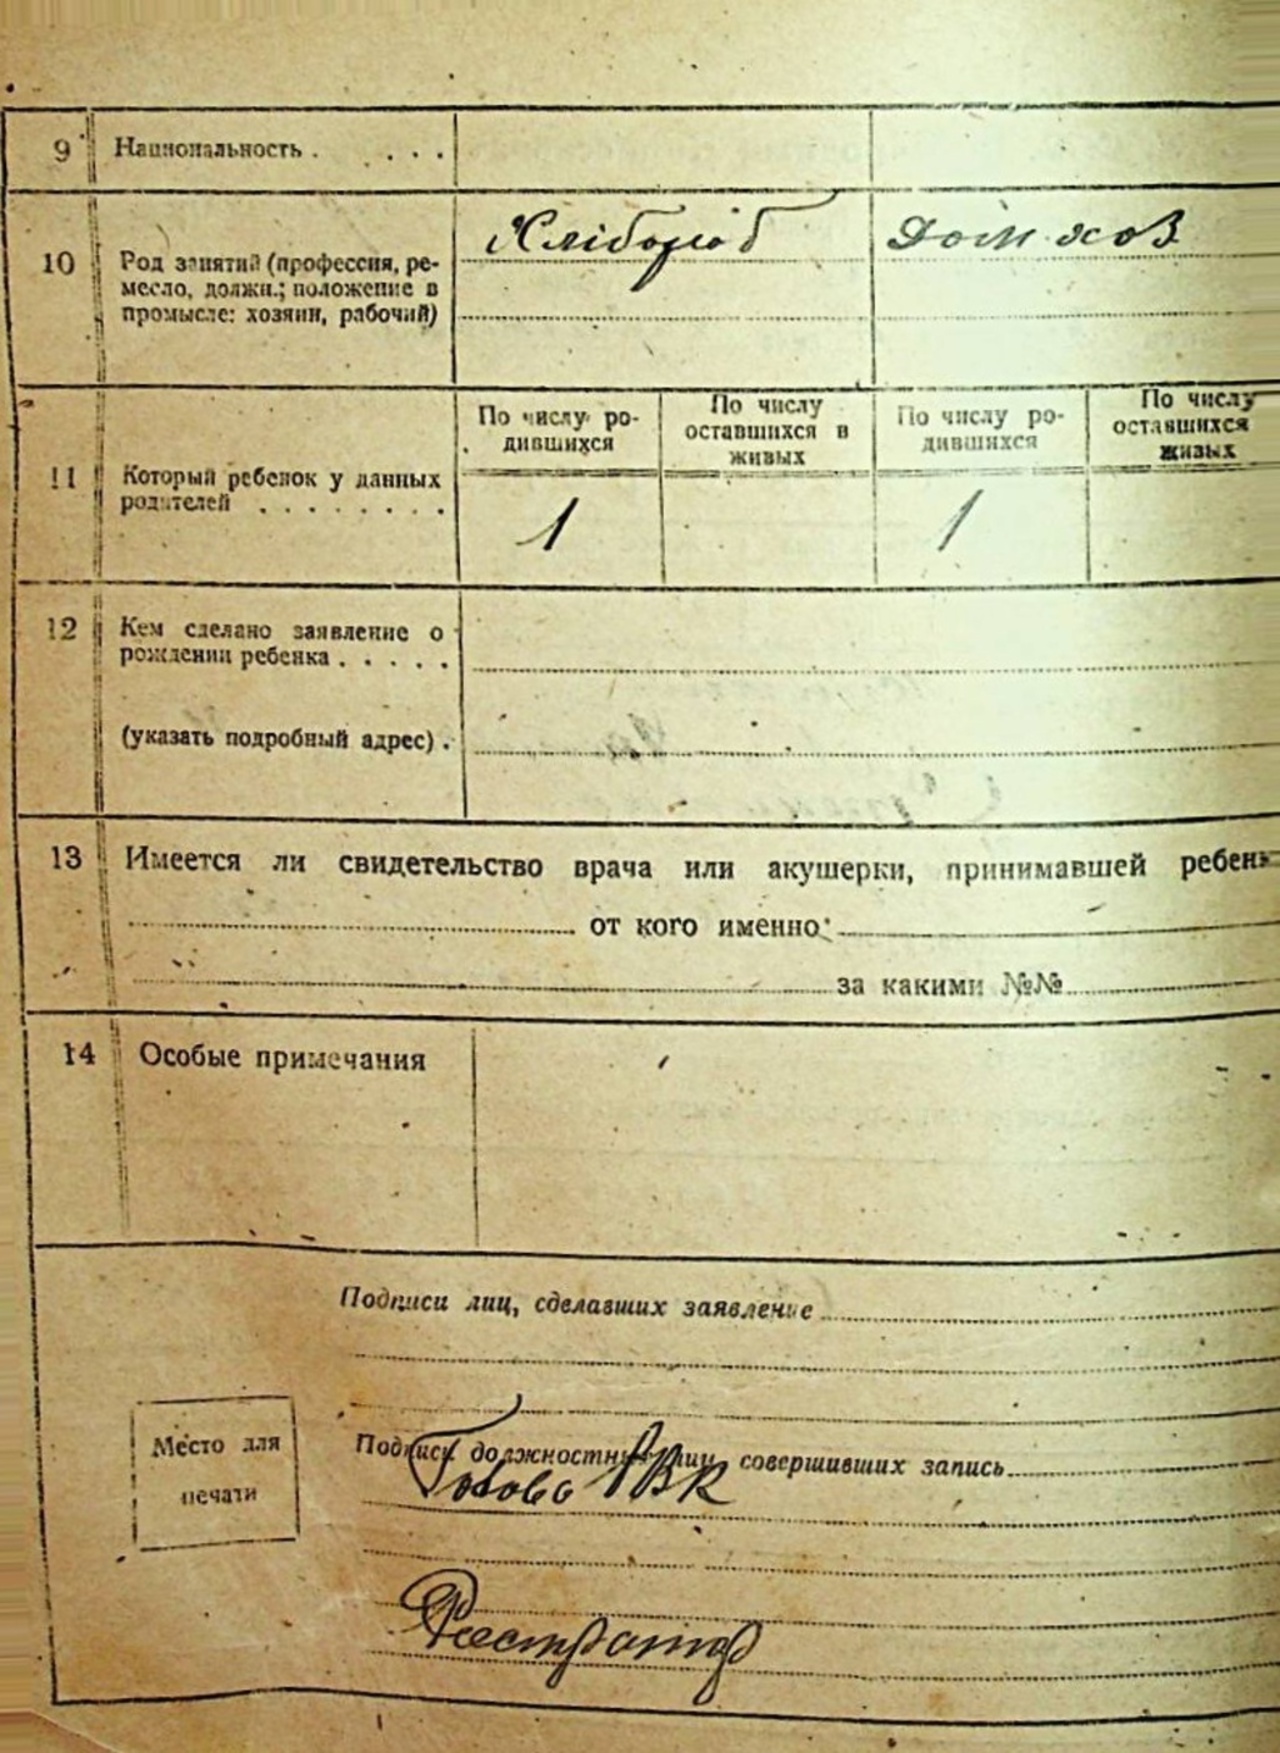 9 Национальность . . . . .
10 Род занятий (профессия, ре-
месло, должн.; положение в
промысле: хозяин, рабочий)
Хлібороб
Дом. хоз
11 Который ребенок у данных
родителей . . . . . . . .
По числу ро-
дившихся
По числу
оставшихся в
живых
По числу ро-
дившихся
По числу
оставшихся
живых
1
1
12 Кем сделано заявление о
рождении ребенка . . . . .
(указать подробный адрес) .
13 Имеется ли свидетельство врача или акушерки, принимавшей ребенк
от кого именно:
за какими №№
14 Особые примечания
Подписи лиц, сделавших заявление
Место для
печати
Подписи должностных лиц совершивших запись
Голова РВК
Реестратор